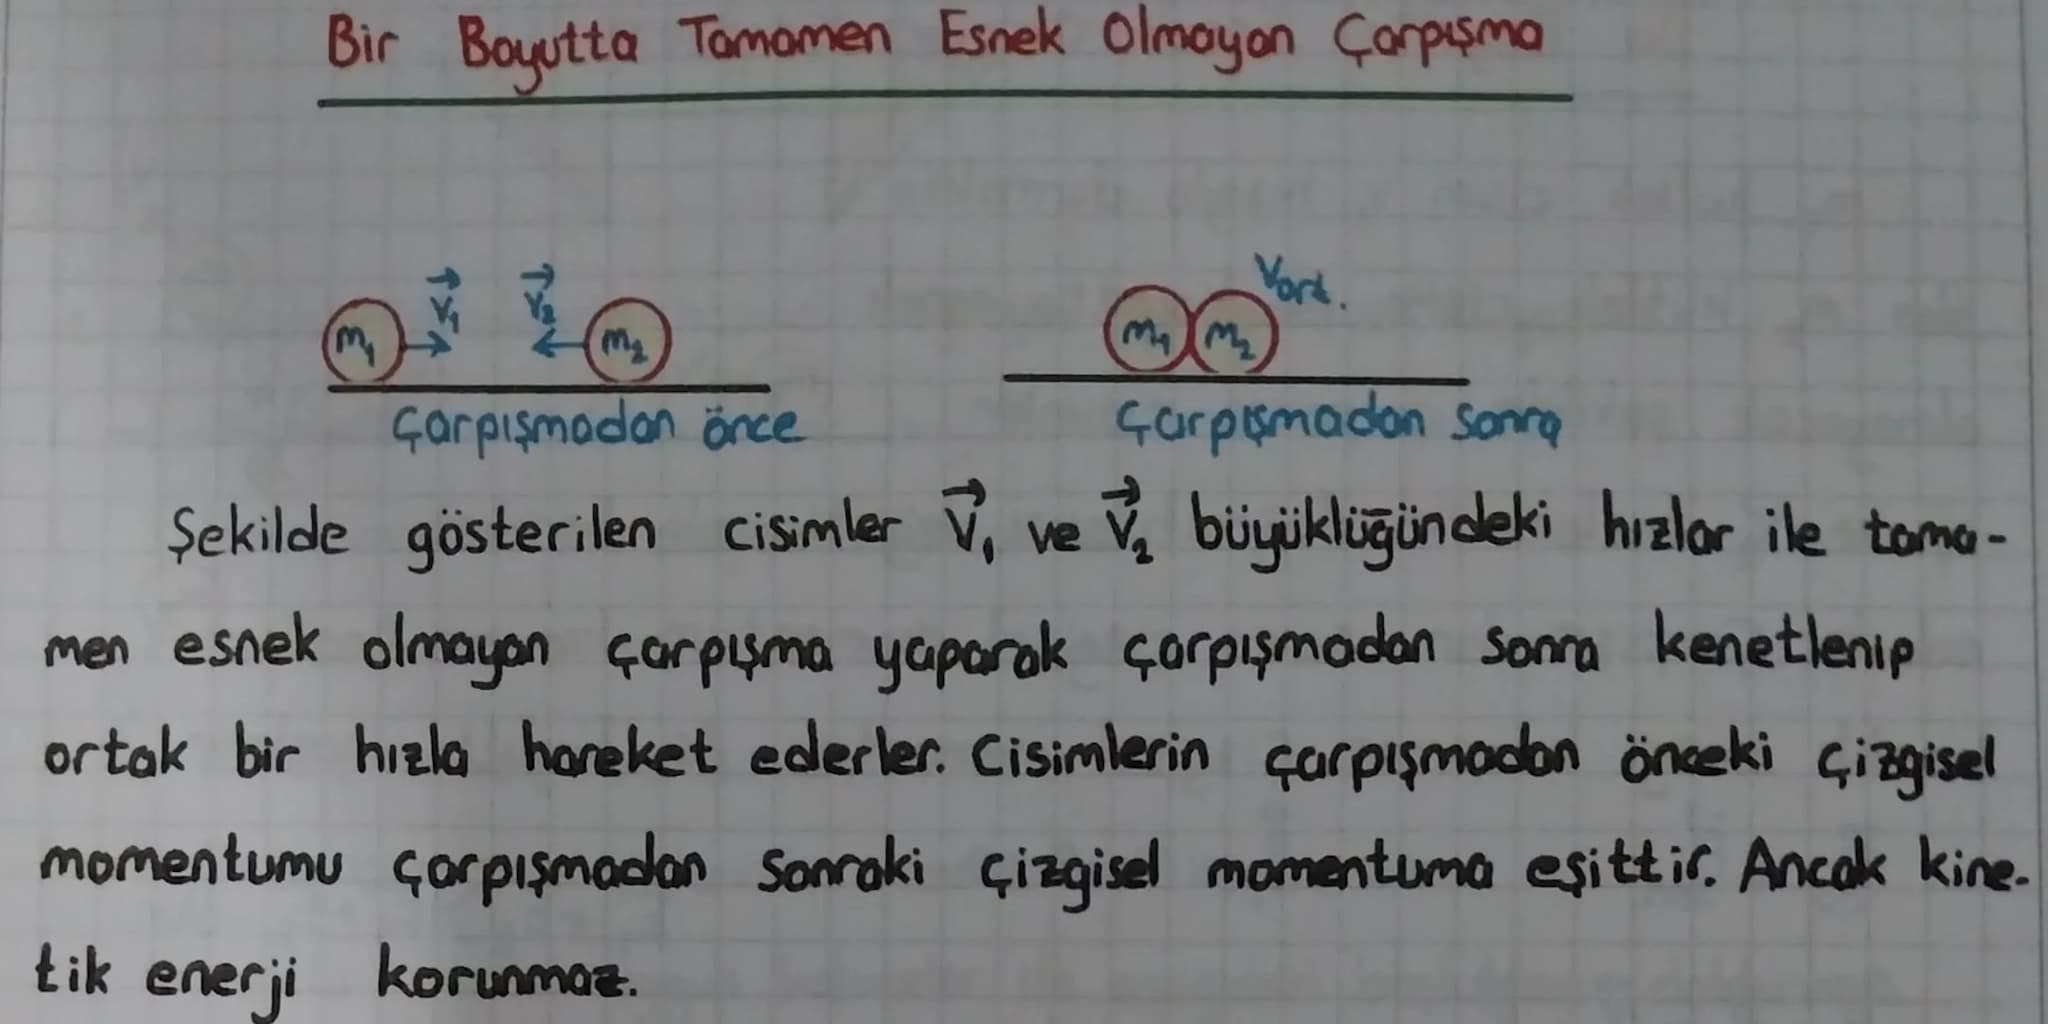 Bir Boyutta Tamamen Esnek Olmayan Çarpışma
V₁ V₂ Vort.
m₁ m₂ m₁ m₂
Çarpışmadan önce Çarpışmadan sonra
Şekilde gösterilen cisimler V₁ ve V₂ büyüklüğündeki hızlar ile tama-
men esnek olmayan çarpışma yaparak çarpışmadan sonra kenetlenip
ortak bir hızla hareket ederler. Cisimlerin çarpışmadan önceki çizgisel
momentumu çarpışmadan sonraki çizgisel momentuma eşittir. Ancak kine-
tik enerji korunmaz.